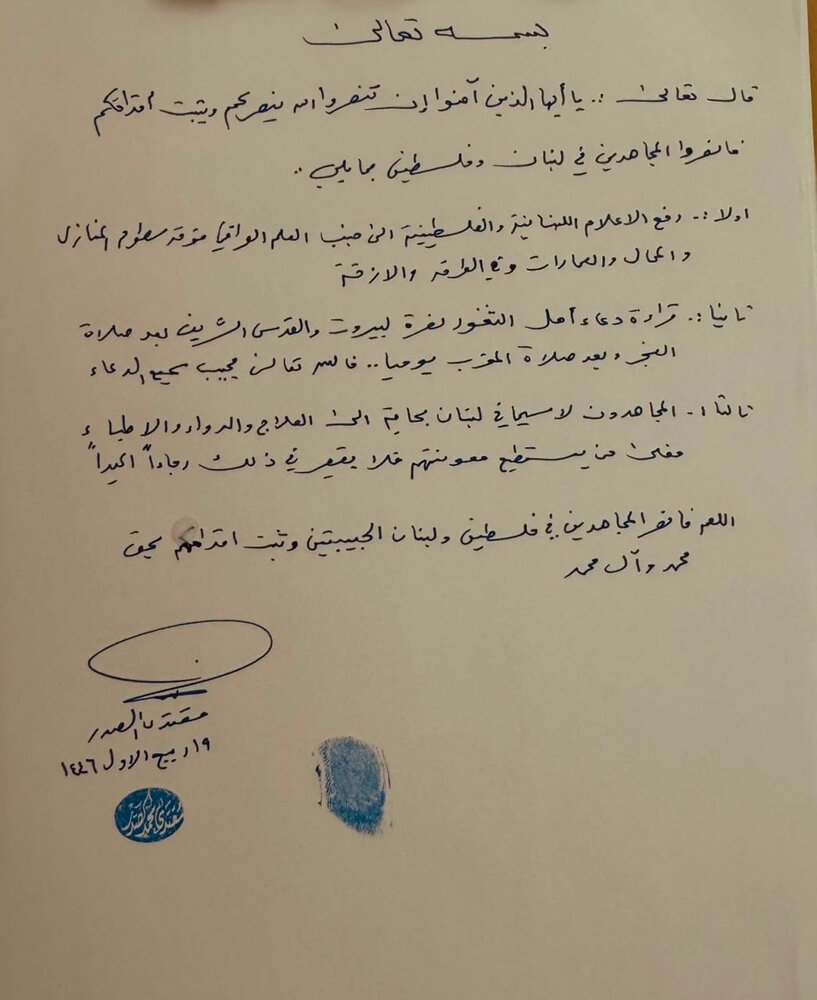 بسمه تعالى
قال تعالى :. يا أيها الذين آمنوا إن تنصروا الله ينصركم ويثبت أقدامكم
فانصروا المجاهدين في لبنان وفلسطين بما يلي ..
اولا :. رفع الاعلام اللبنانية والفلسطينية الى جنب العلم العراقي فوق سطوح المنازل
والمحال والعمارات وفي الطرق والازقة
ثانيا :. قراءة دعاء أهل الثغور لغزة لبيروت والقدس الشريف بعد صلاة
الفجر وبعد صلاة المغرب يوميا .. فالله تعالى مجيب سميع الدعاء
ثالثا :. المجاهدون لا سيما في لبنان بحاجة الى العلاج والدواء والاطباء
فعلى من يستطيع معونتهم فلا يقصر في ذلك رجاءاً اكيداً
اللهم فانصر المجاهدين في فلسطين ولبنان الحبيبتين وثبت اقدامهم بحق
محمد وآل محمد
مقتدى الصدر
١٩ ربيع الاول ١٤٤٦